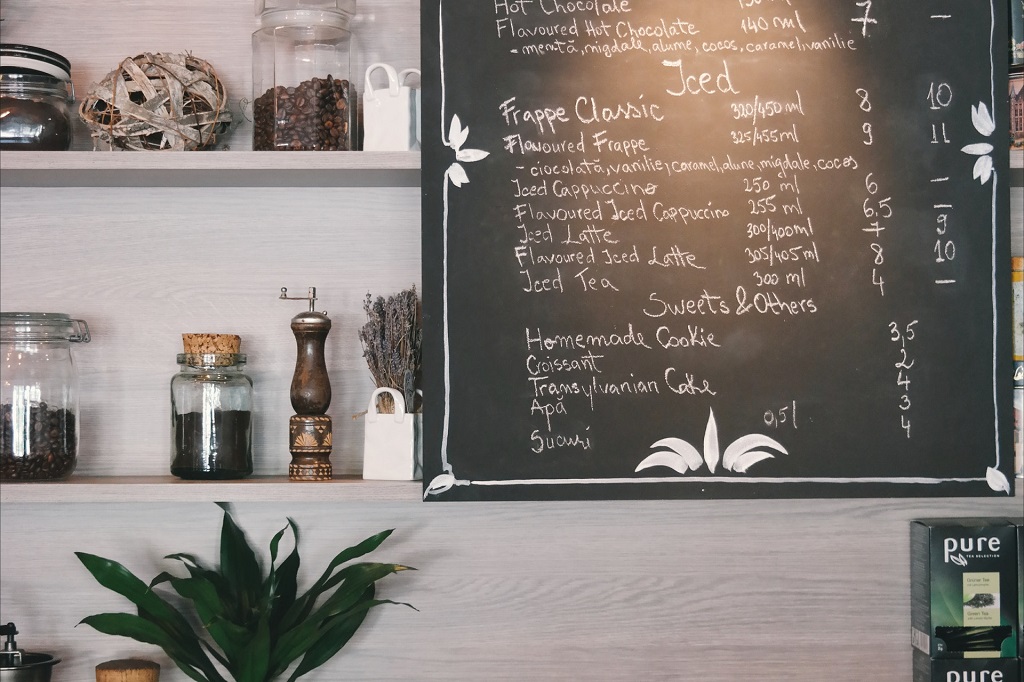 Hot Chocolate
Flavoured Hot Chocolate 140 ml 7 –
- mentă, migdale, alune, cocos, caramel, vanilie
Iced
Frappe Classic 320/450 ml 8 10
Flavoured Frappe 325/455 ml 9 11
- ciocolată, vanilie, caramel, alune, migdale, cocos
Iced Cappuccino 250 ml 6 –
Flavoured Iced Cappuccino 255 ml 6,5 –
Iced Latte 300/400 ml 7 9
Flavoured Iced Latte 305/405 ml 8 10
Iced Tea 300 ml 4 –
Sweets & Others
Homemade Cookie 3,5
Croissant 2
Transylvanian Cake 4
Apă 0,5 l 3
Sucuri 4
pure
TEA SELECTION
Green Tea
pure